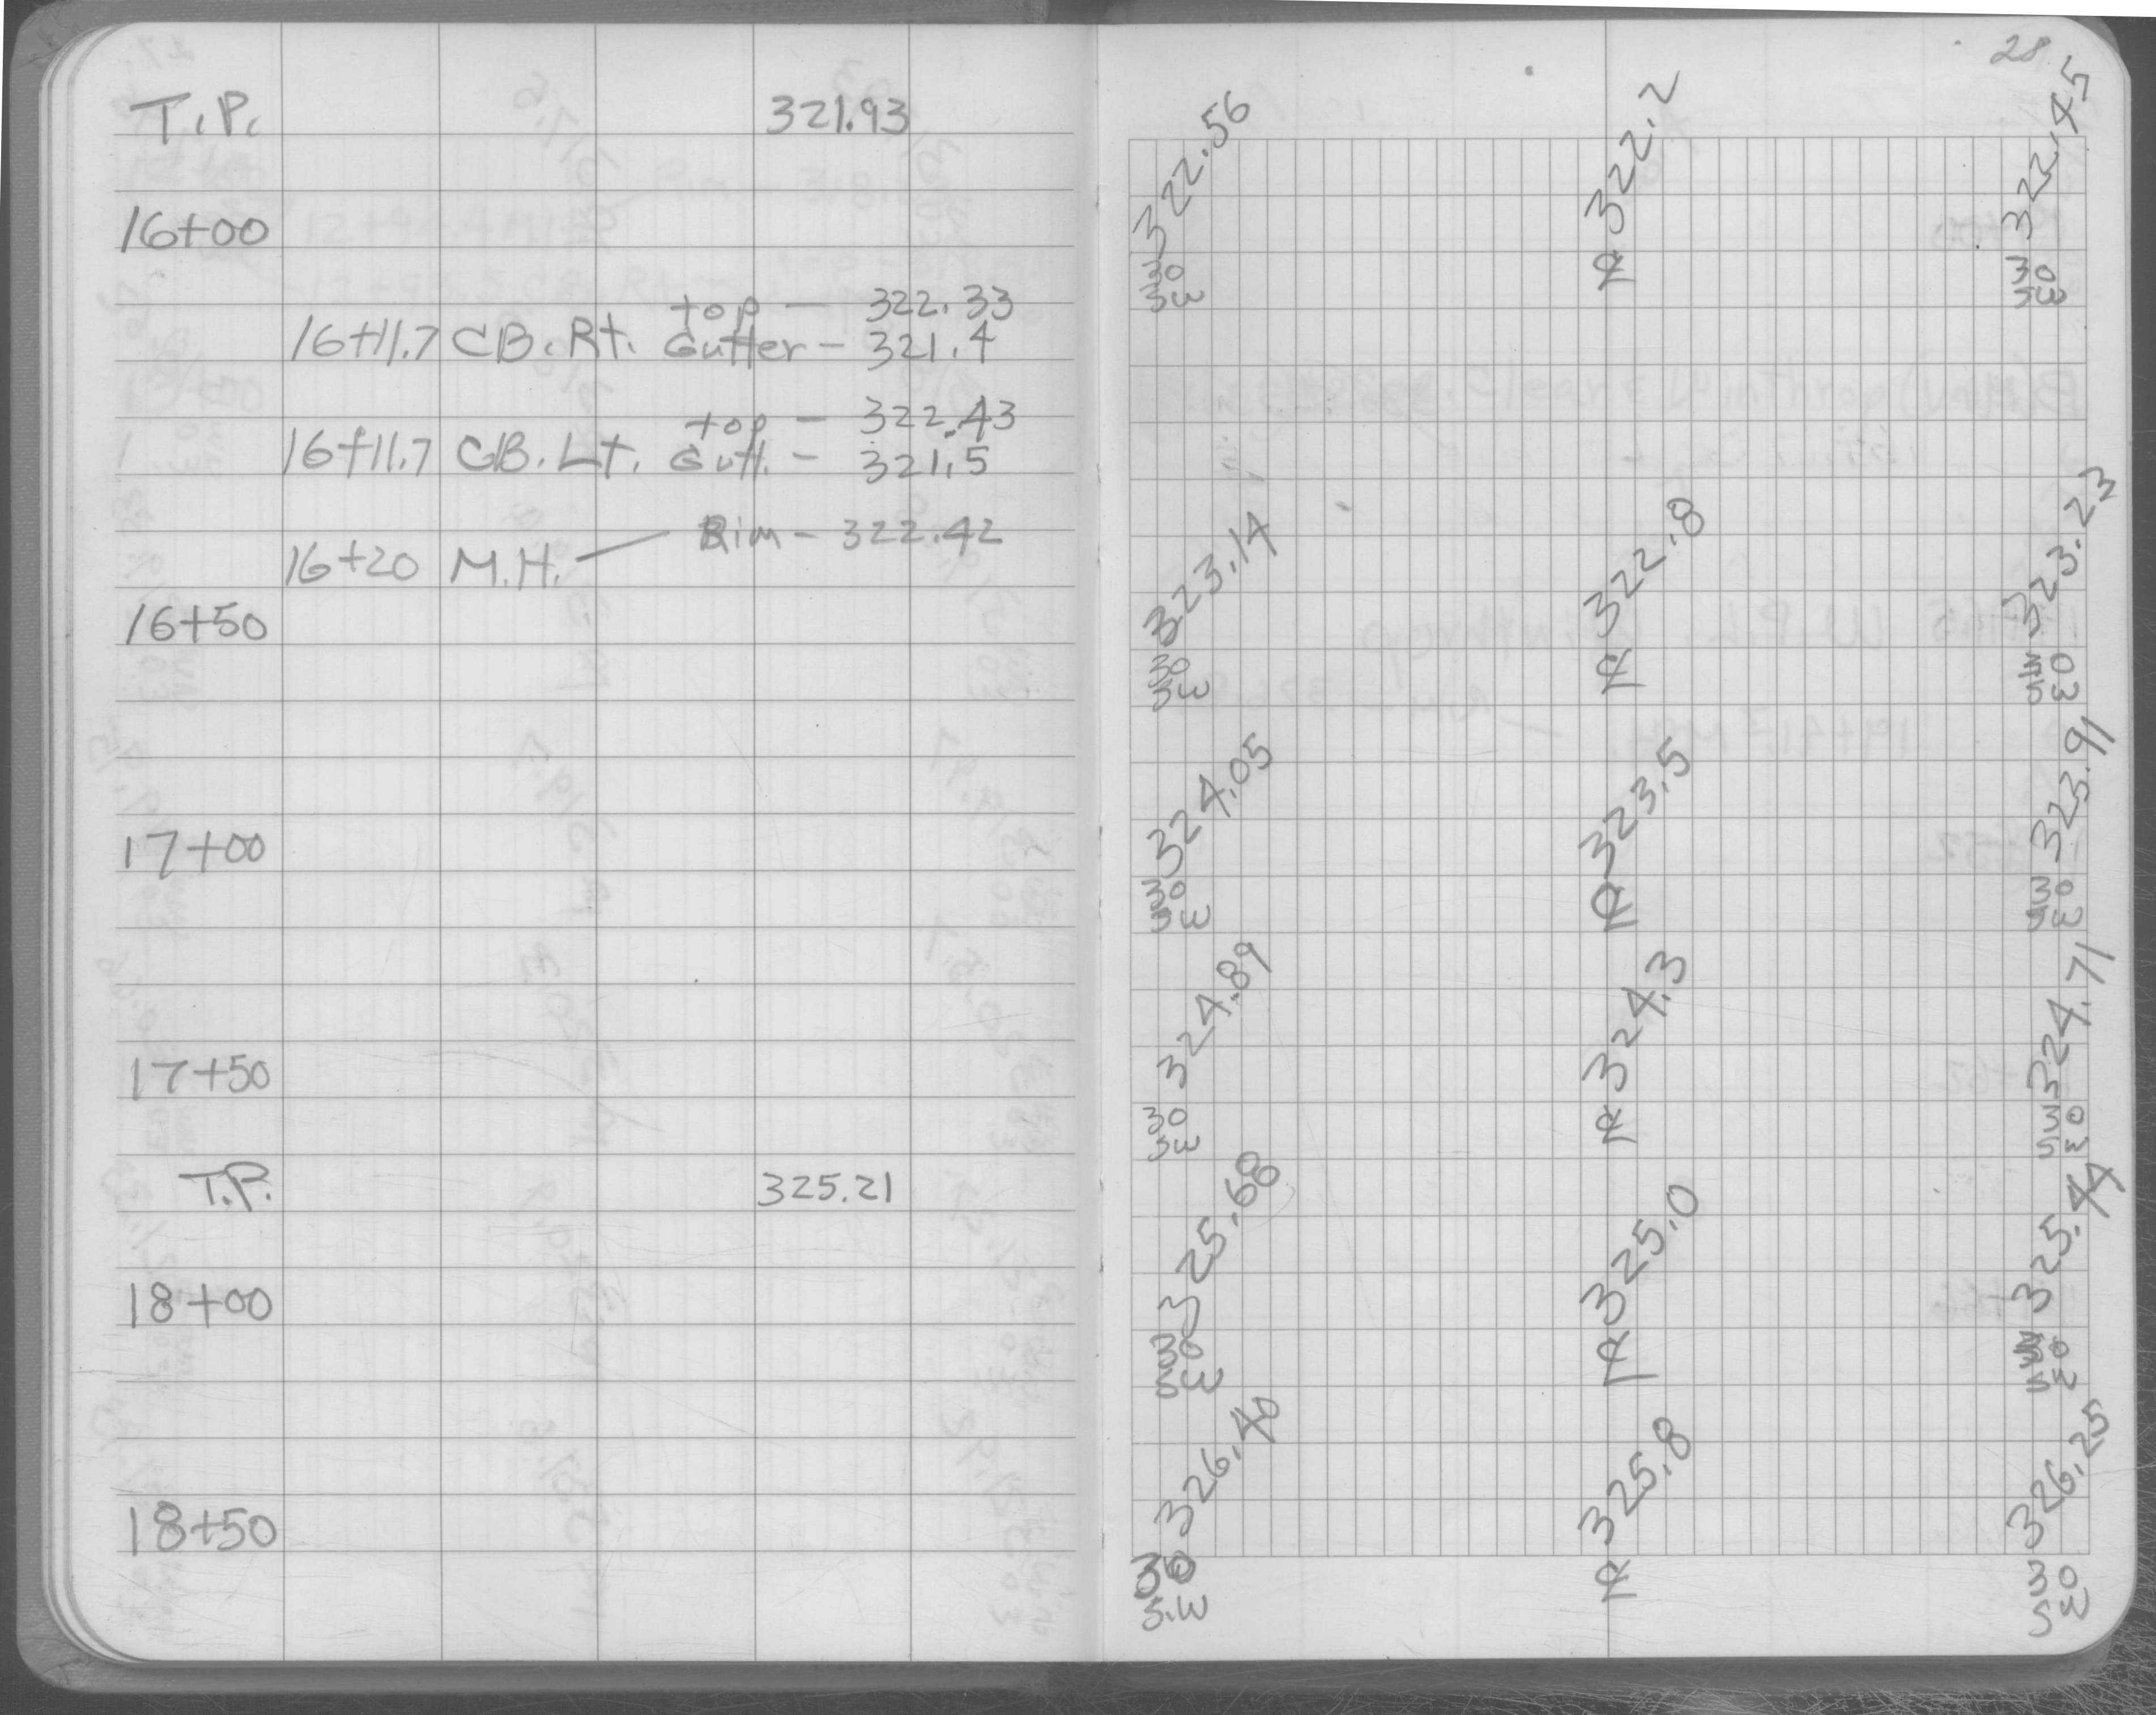 28
T.P. 321.93
322.56 322.2 322.45
16+00
30 ℄ 30
SW SW
top — 322.33
16+11.7 CB. Rt. Gutter — 321.4
top — 322.43
16+11.7 CB. Lt. Gutt. — 321.5
Rim — 322.42
16+20 M.H. —
323.14 322.8 323.23
16+50
30 ℄ 30
SW SW
324.05 323.5 323.91
17+00
30 ℄ 30
SW SW
324.89 324.3 324.71
17+50
30 ℄ 30
SW SW
T.P. 325.21
325.68 325.0 325.44
18+00
30 ℄ 30
SW SW
326.40 325.8 326.25
18+50
30 ℄ 30
S.W SW